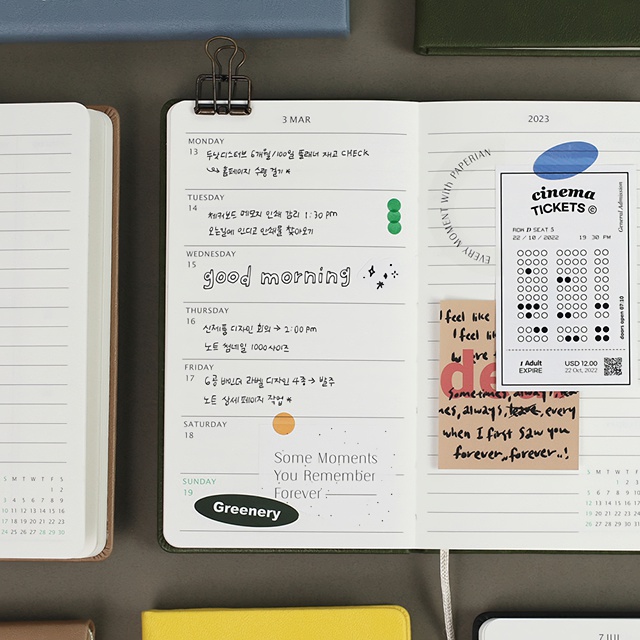 3 MAR
MONDAY
13 두낫디스터브 6개월/100일 플래너 재고 CHECK
↳ 홈페이지 수량 걸기 *
TUESDAY
14 체커보드 메모지 인쇄 감리 1:30 pm
오는길에 인디고 인쇄물 찾아오기
WEDNESDAY
15 good morning
THURSDAY
16 신제품 디자인 회의 → 2:00 pm
노트 썸네일 1000사이즈
FRIDAY
17 6공 바인더 라벨 디자인 4종 → 발주
노트 상세페이지 작업 *
SATURDAY
18
Some Moments
You Remember
Forever.
SUNDAY
19
Greenery
2023
EVERY MOMENT with PAPERIAN
cinema
TICKETS ©
General Admission
ROW D SEAT 5
22 / 10 / 2022 19 30 PM
doors open 07:10
1 Adult
EXPIRE
USD 12.00
22 Oct, 2022
I feel like
I feel li
de
sometimes, always,
always, every
when I first saw you
forever, forever..!
S M T W T F S
1 2
3 4 5 6 7 8 9
10 11 12 13 14 15 16
17 18 19 20 21 22 23
24 25 26 27 28 29 30
S M T W
5 6 7 8
12 13 14 15
19 20 21 22
26 27 28 29
7 JUL